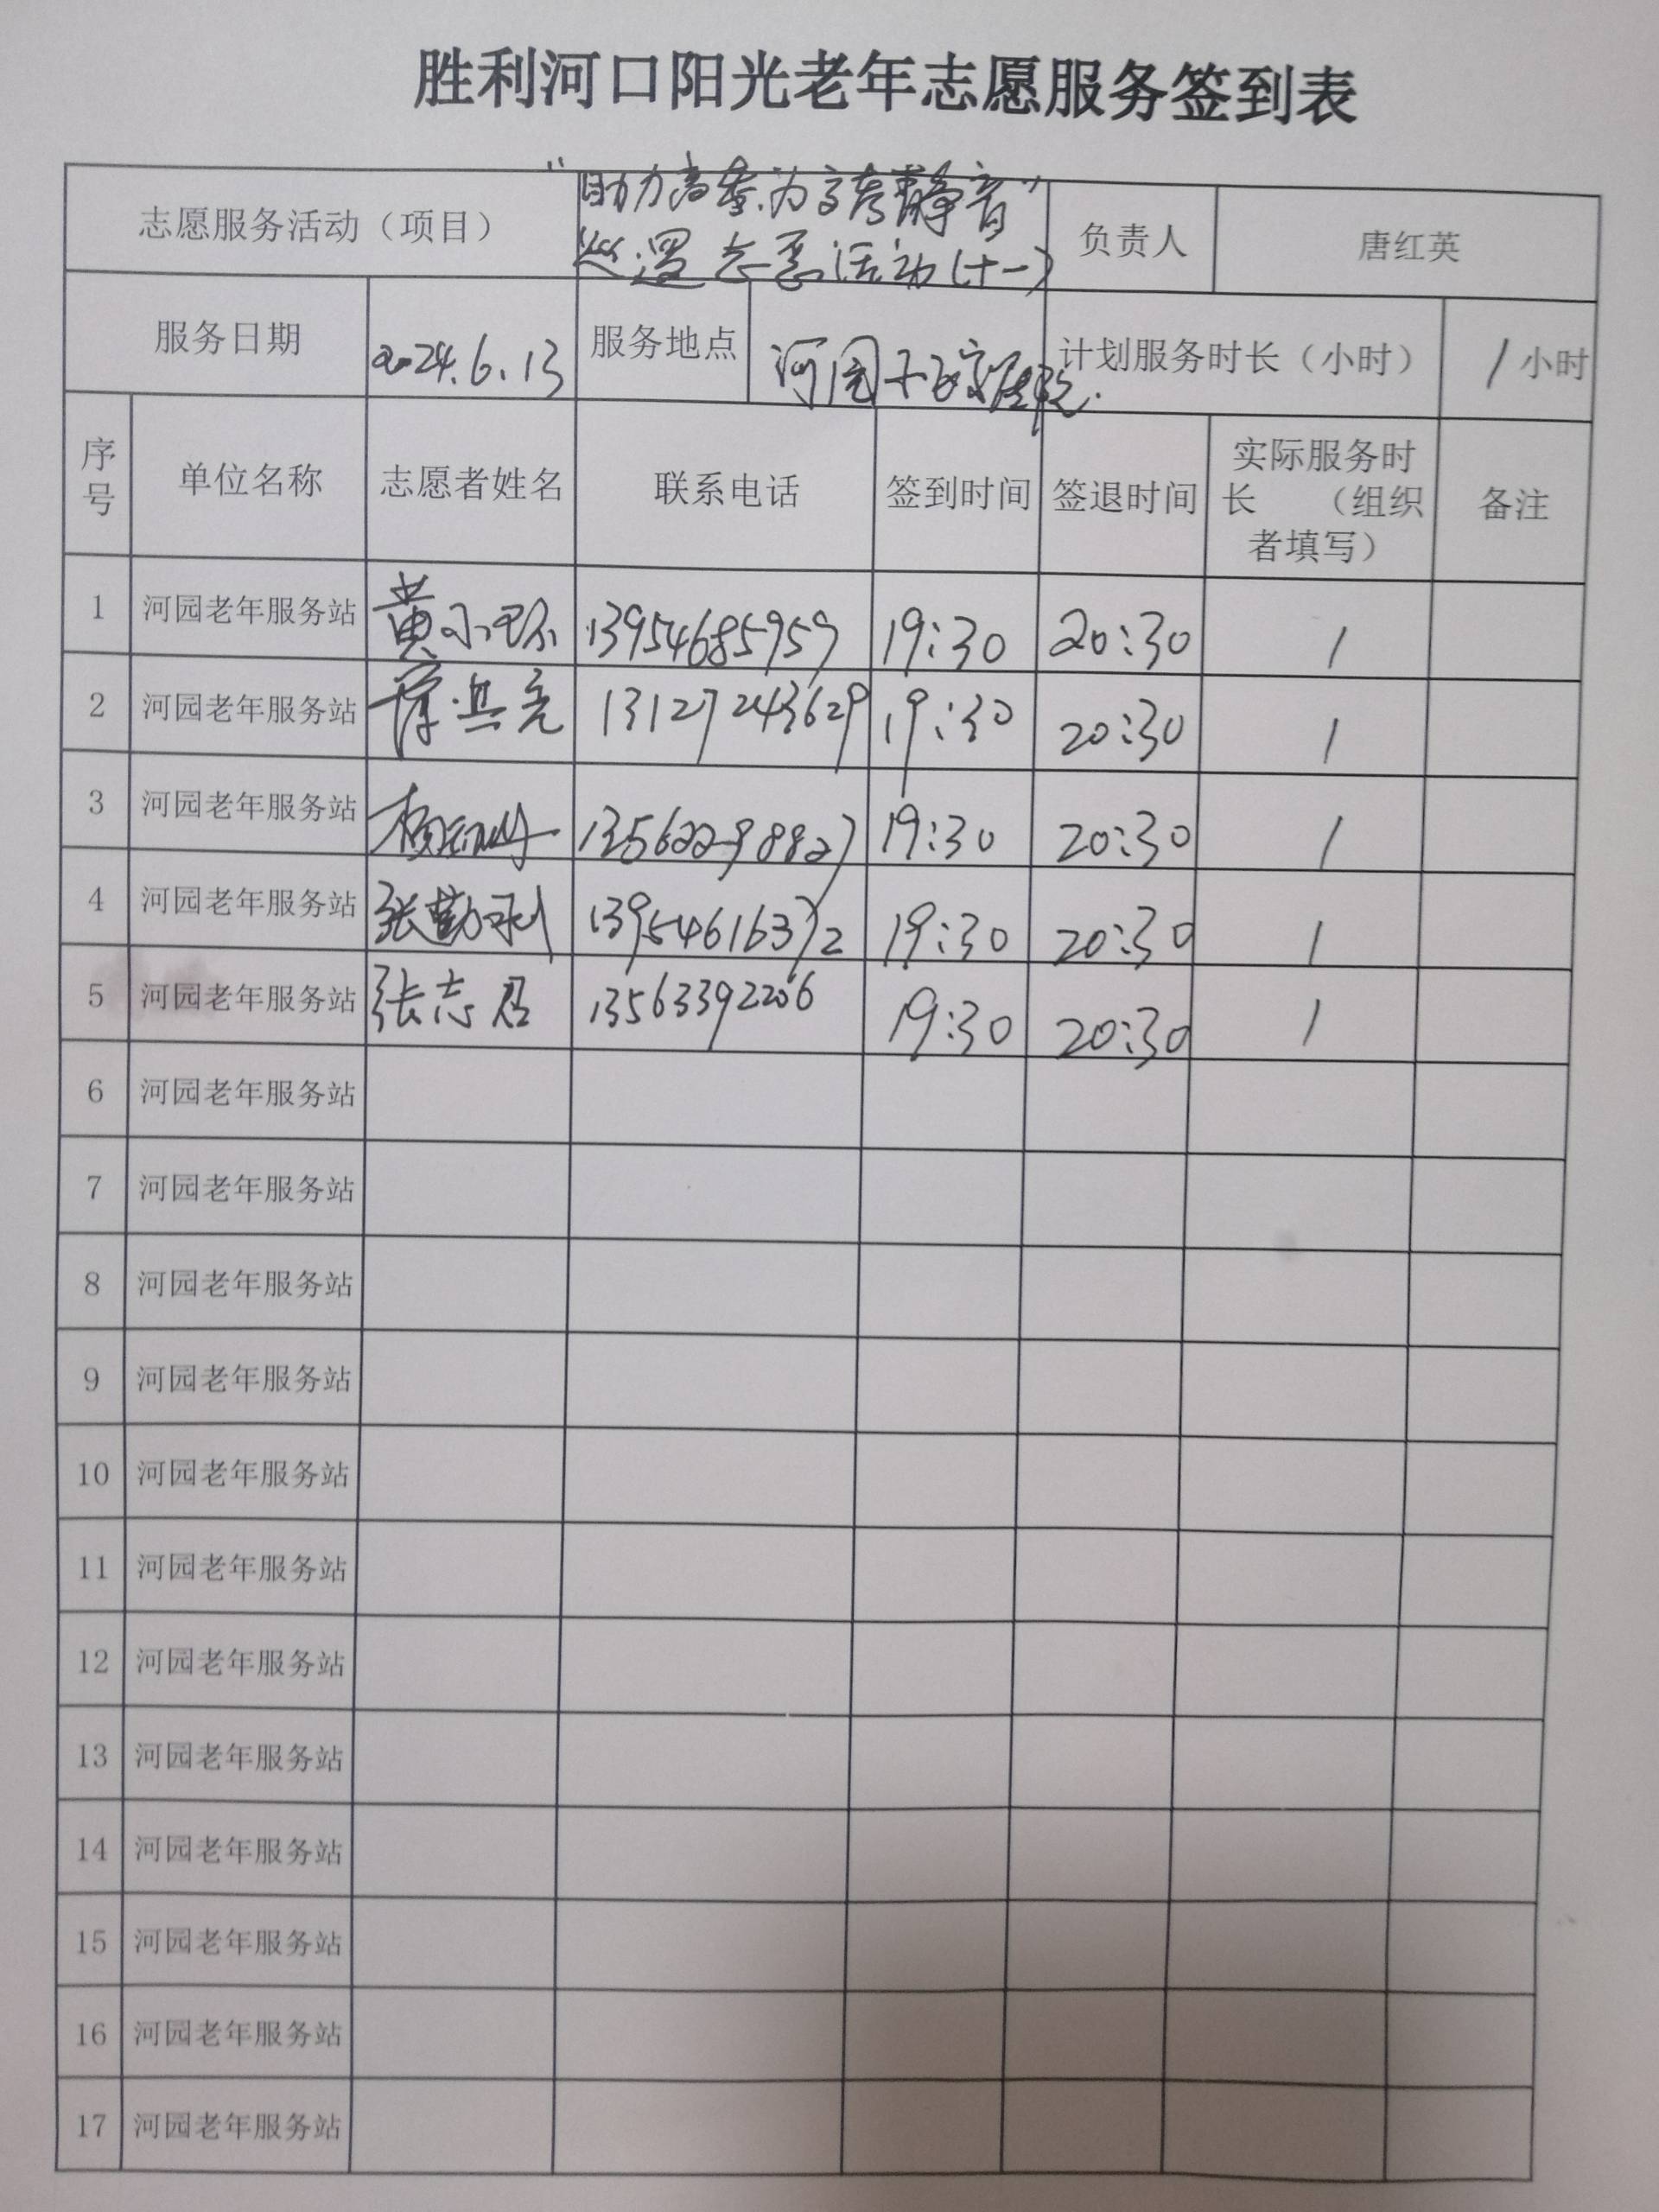 胜利河口阳光老年志愿服务签到表
志愿服务活动（项目） "助力高考,为高考静音" 巡逻志愿活动(十一) 负责人 唐红英
服务日期 2024.6.13 服务地点 河园 计划服务时长（小时） 1小时
序号 单位名称 志愿者姓名 联系电话 签到时间 签退时间 实际服务时长 （组织者填写） 备注
1 河园老年服务站 黄小 13954685959 19:30 20:30 1
2 河园老年服务站 13127243629 19:30 20:30 1
3 河园老年服务站 杨 13562298827 19:30 20:30 1
4 河园老年服务站 张勤利 13954616372 19:30 20:30 1
5 河园老年服务站 张志君 13563392206 19:30 20:30 1
6 河园老年服务站
7 河园老年服务站
8 河园老年服务站
9 河园老年服务站
10 河园老年服务站
11 河园老年服务站
12 河园老年服务站
13 河园老年服务站
14 河园老年服务站
15 河园老年服务站
16 河园老年服务站
17 河园老年服务站